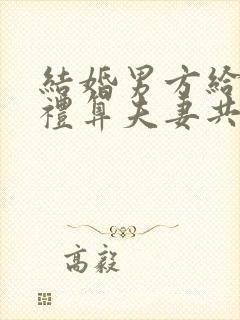 結婚男方給
禮算夫妻共
高毅